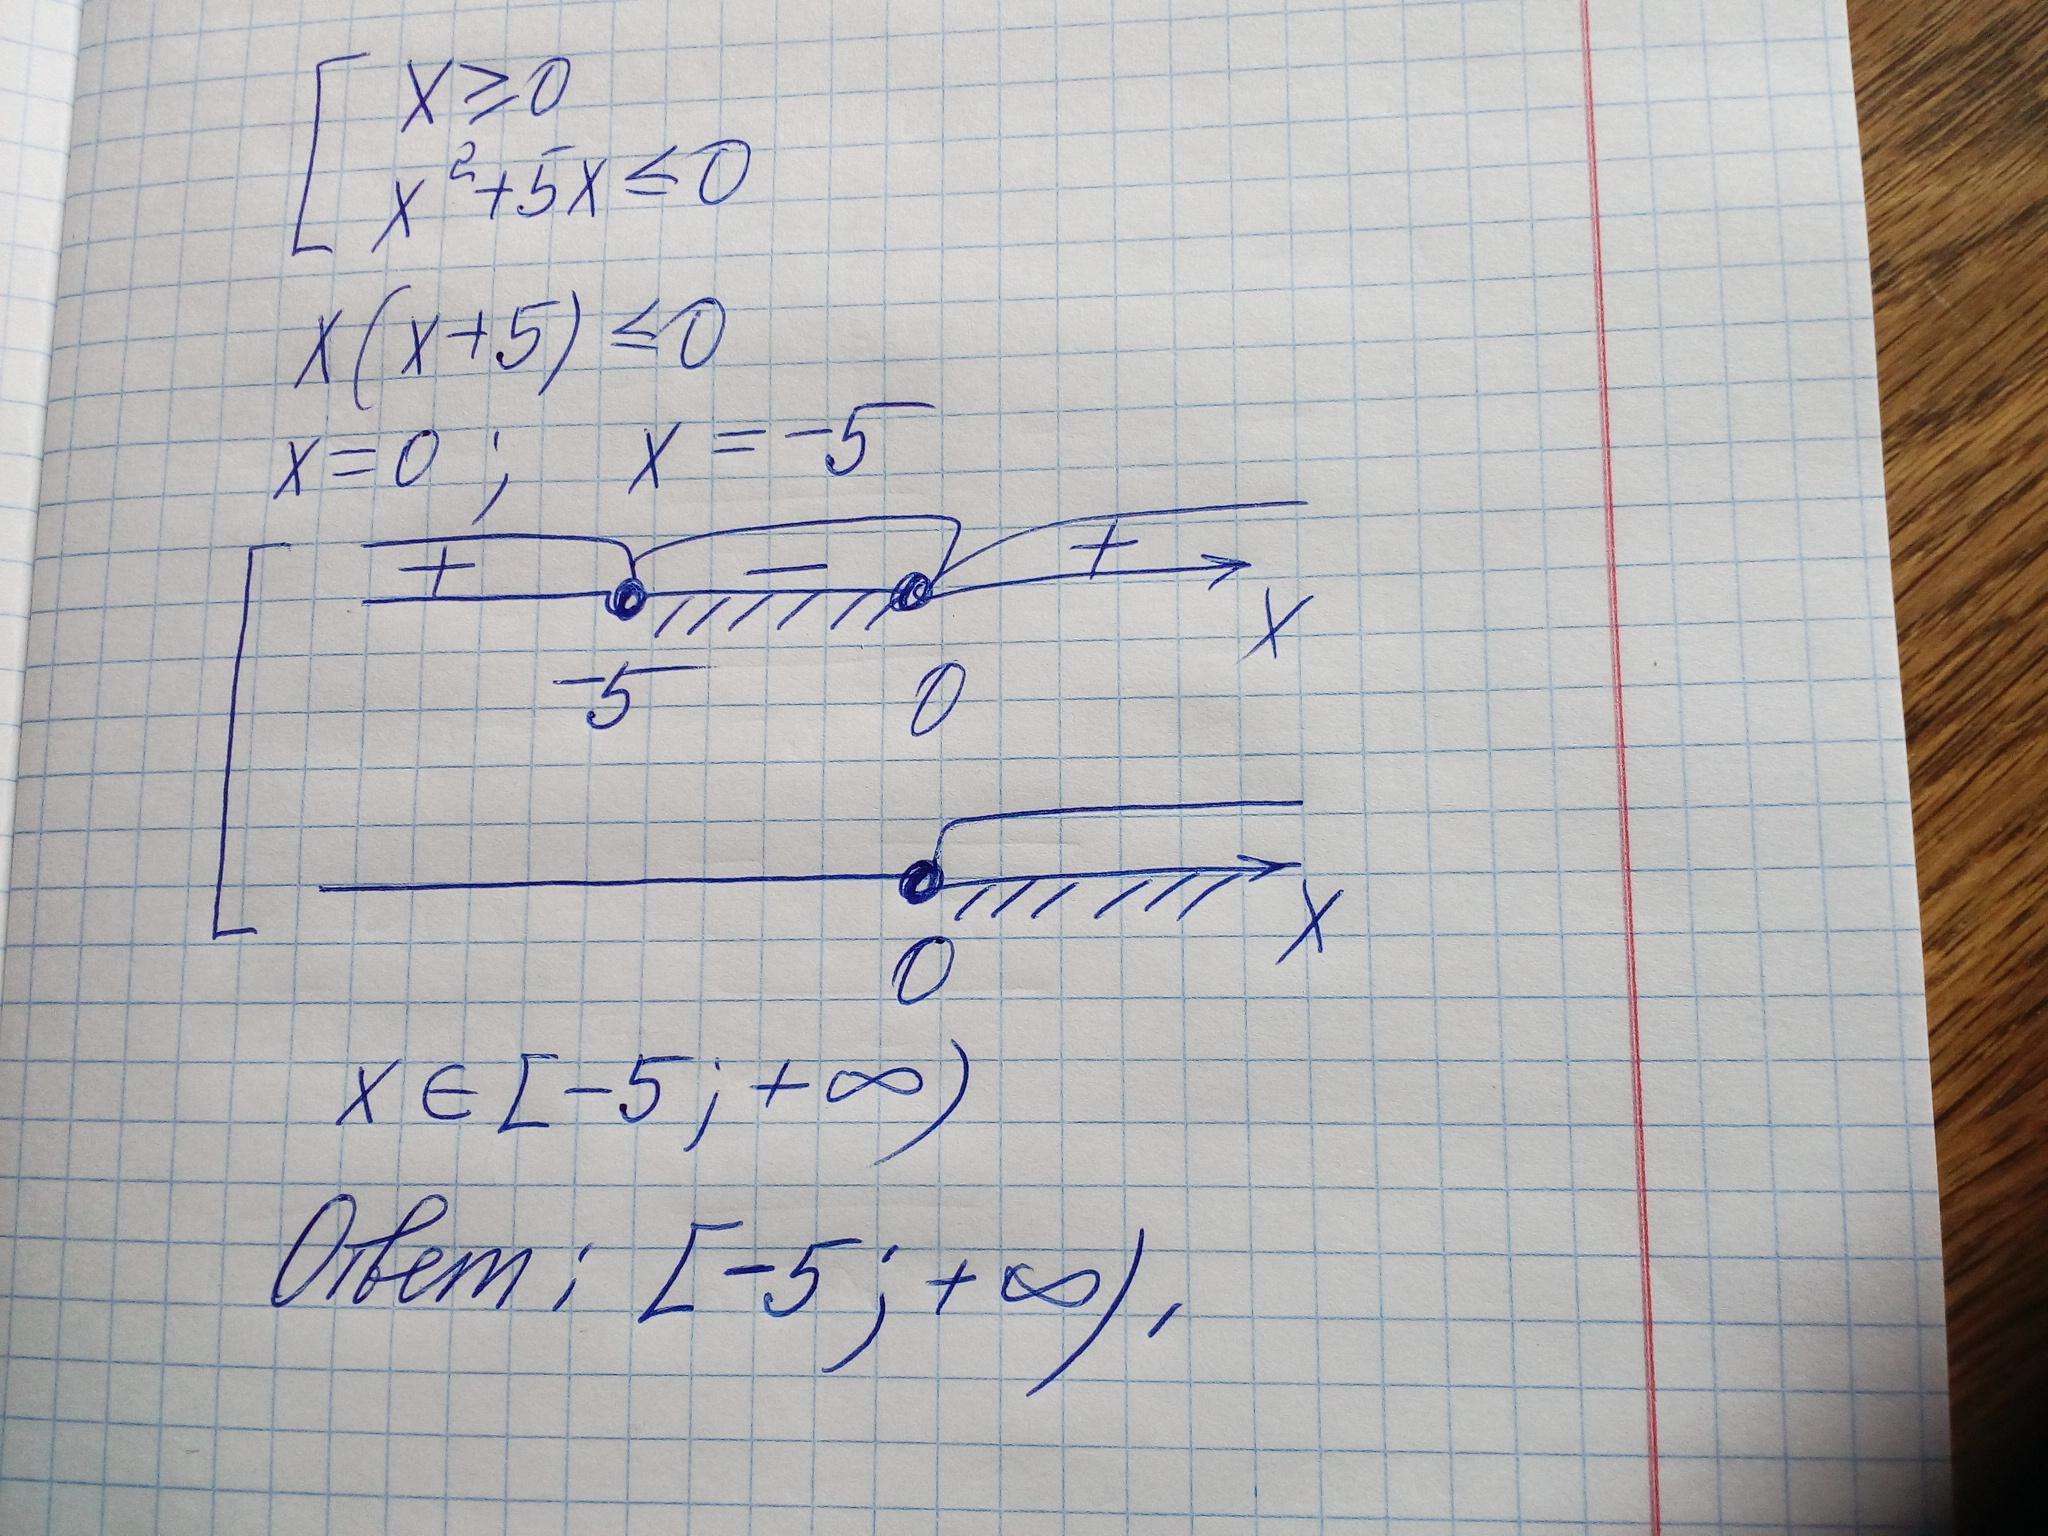 [ x ≥ 0
x² + 5x ≤ 0
x(x+5) ≤ 0
x = 0 ; x = -5
+ - + x
-5 0
x
0
x ∈ [-5 ; +∞)
Ответ: [-5 ; +∞).